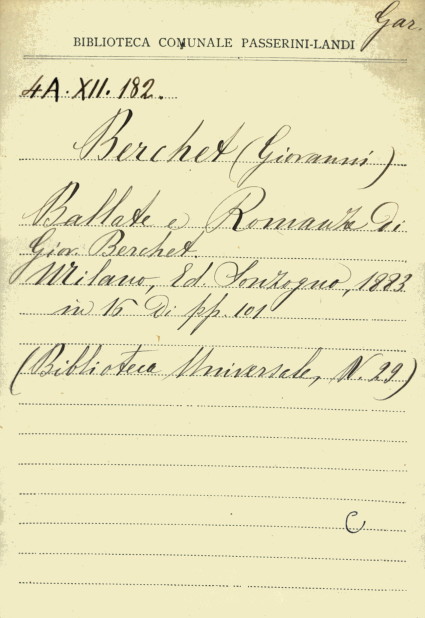 Gar.
BIBLIOTECA COMUNALE PASSERINI-LANDI
4A. XII. 182.
Berchet (Giovanni)
Ballate e Romanze di
Giov. Berchet.
Milano, Ed. Sonzogno, 1883
in 16 di pp. 101
(Biblioteca Universale, N. 29)
C